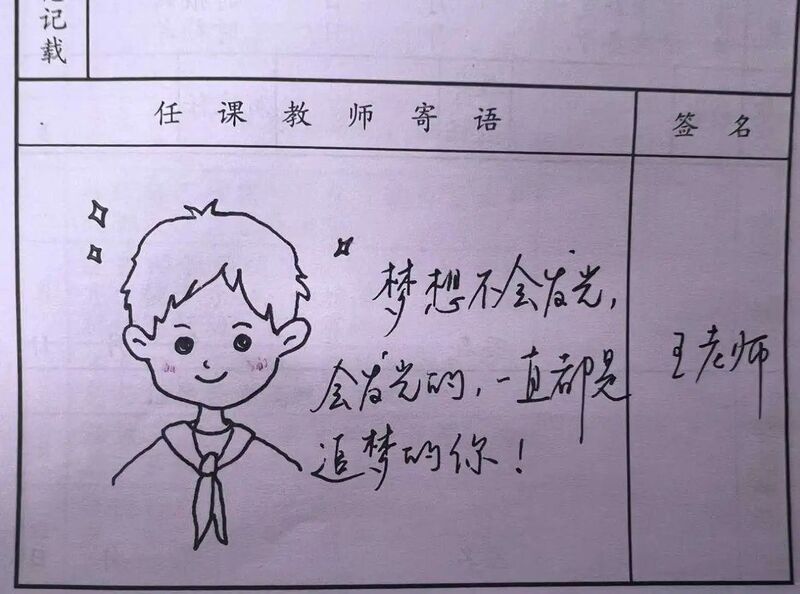 记载
任课教师寄语
签名
梦想不会发光,
会发光的,一直都是
追梦的你!
王老师